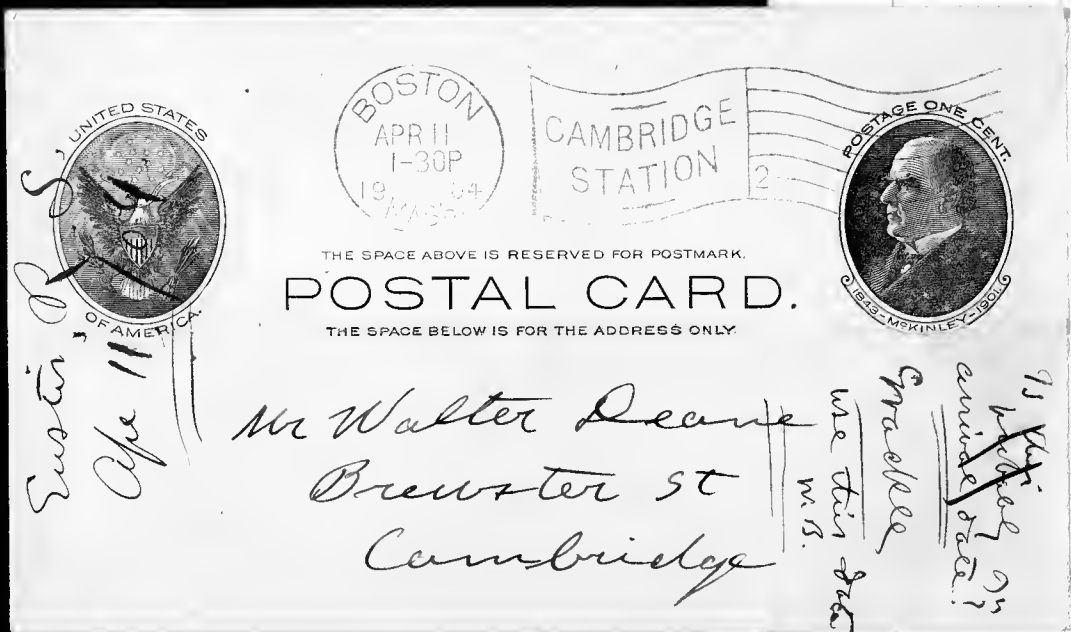 UNITED STATES
OF AMERICA.
BOSTON
APR 11
1-30P
19 04
MASS.
CAMBRIDGE
STATION
2
POSTAGE ONE CENT.
1843-McKINLEY-1901
THE SPACE ABOVE IS RESERVED FOR POSTMARK.
POSTAL CARD.
THE SPACE BELOW IS FOR THE ADDRESS ONLY.
Mr Walter Deane
Brewster St
Cambridge
Eustis, R. S.
Apr 11
Is this
arrival date?
Grackle
use this date
W.B.